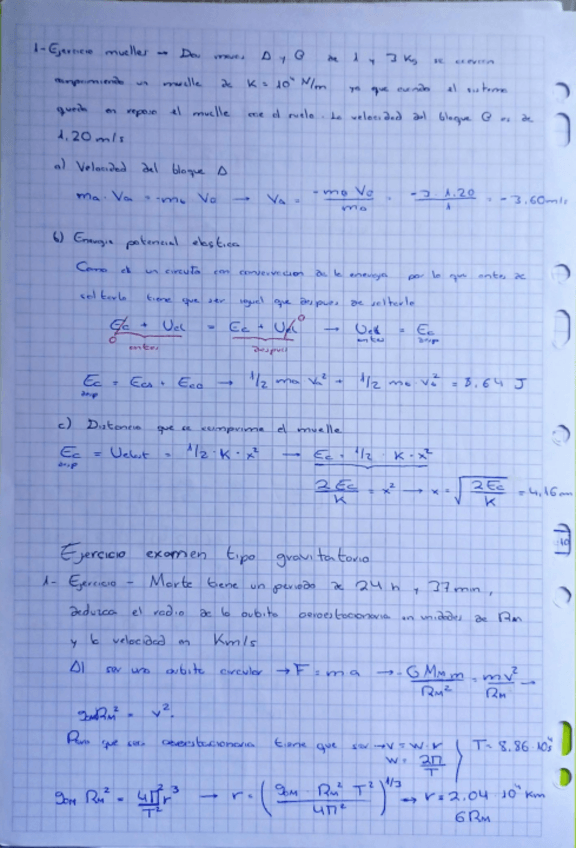 1-Ejercicio muelles → Dos masas A y B de 1 y 3 Kg se
comprimiendo un muelle de K = 10⁴ N/m ya que cuando el sistema
queda en reposo el muelle cae al suelo. La velocidad del bloque B es de
1.20 m/s
a) Velocidad del bloque A
ma · Va = -mb Vb → Va = -mb Vb / ma = -3 · 1.20 / 1 = -3.60 m/s
b) Energia potencial elastica
Como es un circuito con conservacion de la energia por lo que antes de
soltarlo tiene que ser igual que despues de soltarlo
Ec + Uel = Ec + Uel → Uel = Ec
0 antes despues 0 antes desp
Ec = Eca + Ecb → 1/2 ma Va² + 1/2 mb · Vb² = 8.64 J
desp
c) Distancia que se comprime el muelle
Ec = Uelast = 1/2 · K · x² → Ec = 1/2 · K · x²
desp
2Ec / K = x² → x = √(2Ec / K) = 4.16 cm
Ejercicio examen tipo gravitatorio
1- Ejercicio - Marte tiene un periodo de 24 h y 37 min,
deduzca el radio de la orbita aeroestacionaria en unidades de Rm
y la velocidad en Km/s
Al ser una orbita circular → F = ma → -G Mm m / Rm² = m v² / Rm →
g₀M Rm² = v².
Para que sea aeroestacionaria tiene que ser → v = w · r } T = 8.86 · 10⁴
w = 2π / T
g₀M Rm² = 4π² r³ / T² → r = (g₀M · Rm² T² / 4π²)^1/3 → r = 2.04 · 10⁴ km
6 Rm